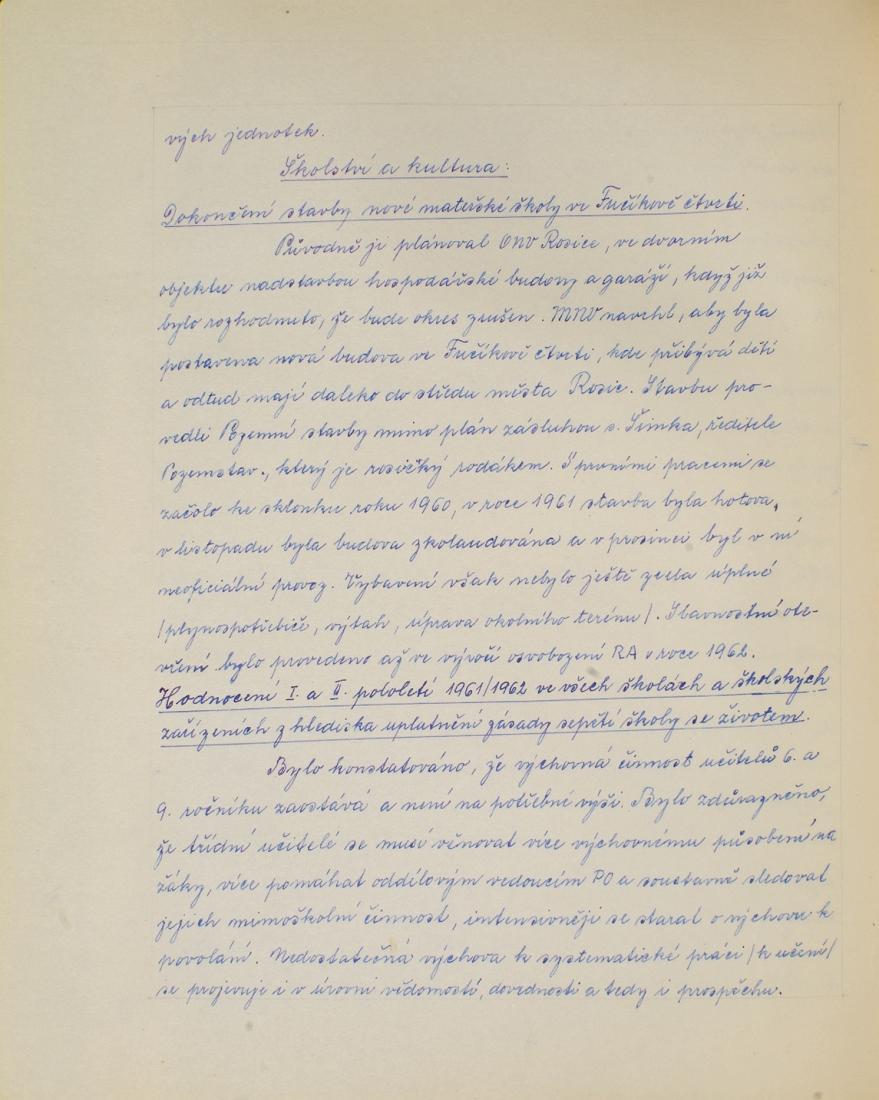 vých jednotek.
Školství a kultura:
Dokončení stavby nové mateřské školy ve Fučíkově čtvrti.
Původně ji plánoval ONV Rosice, ve dvorním
objektu nadstavbou hospodářské budovy a garáží, když již
bylo rozhodnuto, že bude okres zrušen. MNV navrhl, aby byla
postavena nová budova ve Fučíkově čtvrti, kde přibývá dětí
a odtud mají daleko do středu města Rosic. Stavbu pro-
vedli Pozemní stavby mimo plán zásluhou s. Šimka, ředitele
Pozemstav., který je rosický rodákem. S prvními pracemi se
začalo ke sklonku roku 1960, v roce 1961 stavba byla hotova,
v listopadu byla budova zkolaudována a v prosinci byl v ní
neoficiální provoz. Vybavení však nebylo ještě zcela úplné
/plynospotřebiče, výtah, úprava okolního terénu/. Slavnostní ote-
vření bylo provedeno až ve výročí osvobození RA v roce 1962.
Hodnocení I. a II. pololetí 1961/1962 ve všech školách a školských
zařízeních z hlediska uplatnění zásady sepětí školy se životem.
Bylo konstatováno, že výchovná činnost učitelů 6. a
9. ročníku zaostává a není na potřební výši. Bylo zdůrazněno,
že třídní učitelé se musí věnovat více výchovnému působení na
žáky, více pomáhat oddílovým vedoucím PO a soustavně sledovat
jejich mimoškolní činnost, intensivněji se starat o výchovu k
povolání. Nedostatečná výchova k systematické práci /k učení/
se projevuje i v úrovni vědomostí, dovedností a tedy i prospěchu.